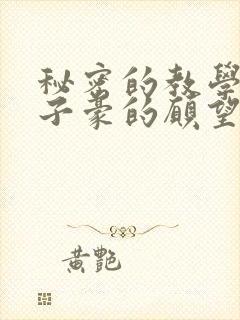 秘密的教學
子豪的願望
黃艷